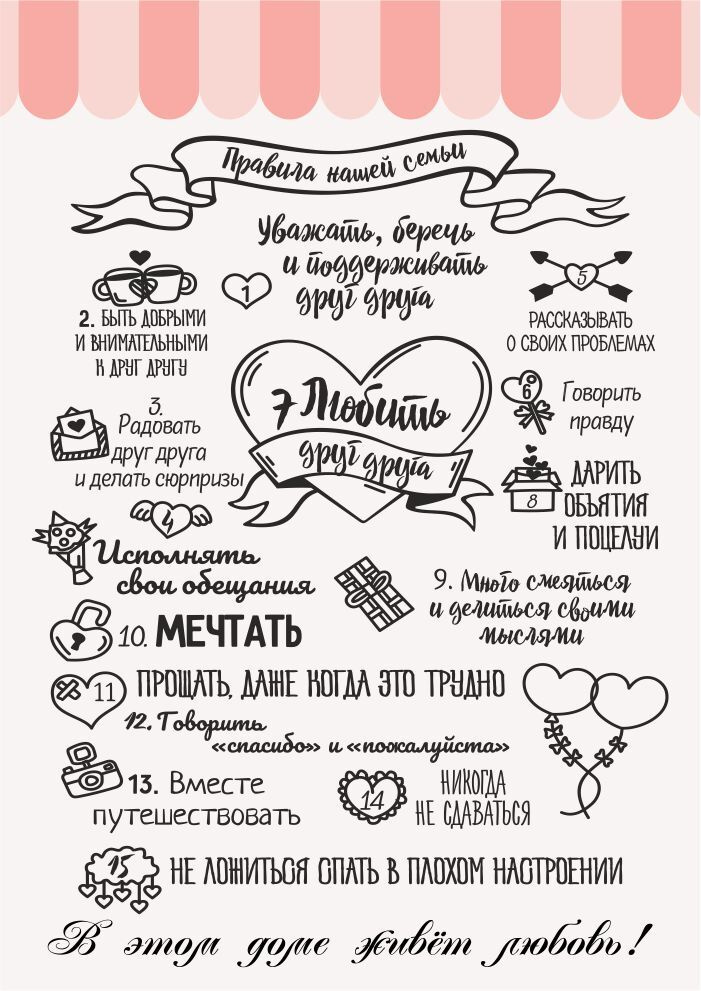 Правила нашей семьи
1
Уважать, беречь
и поддерживать
друг друга
2. БЫТЬ ДОБРЫМИ
И ВНИМАТЕЛЬНЫМИ
К ДРУГ ДРУГУ
3.
Радовать
друг друга
и делать сюрпризы
4
Исполнять
свои обещания
5
РАССКАЗЫВАТЬ
О СВОИХ ПРОБЛЕМАХ
6
Говорить
правду
7 Любить
друг друга
8
ДАРИТЬ
ОБЪЯТИЯ
И ПОЦЕЛУИ
9. Много смеяться
и делиться своими
мыслями
10. МЕЧТАТЬ
11 ПРОЩАТЬ, ДАЖЕ КОГДА ЭТО ТРУДНО
12. Говорить
«спасибо» и «пожалуйста»
13. Вместе
путешествовать
14
НИКОГДА
НЕ СДАВАТЬСЯ
15 НЕ ЛОЖИТЬСЯ СПАТЬ В ПЛОХОМ НАСТРОЕНИИ
В этом доме живёт любовь!